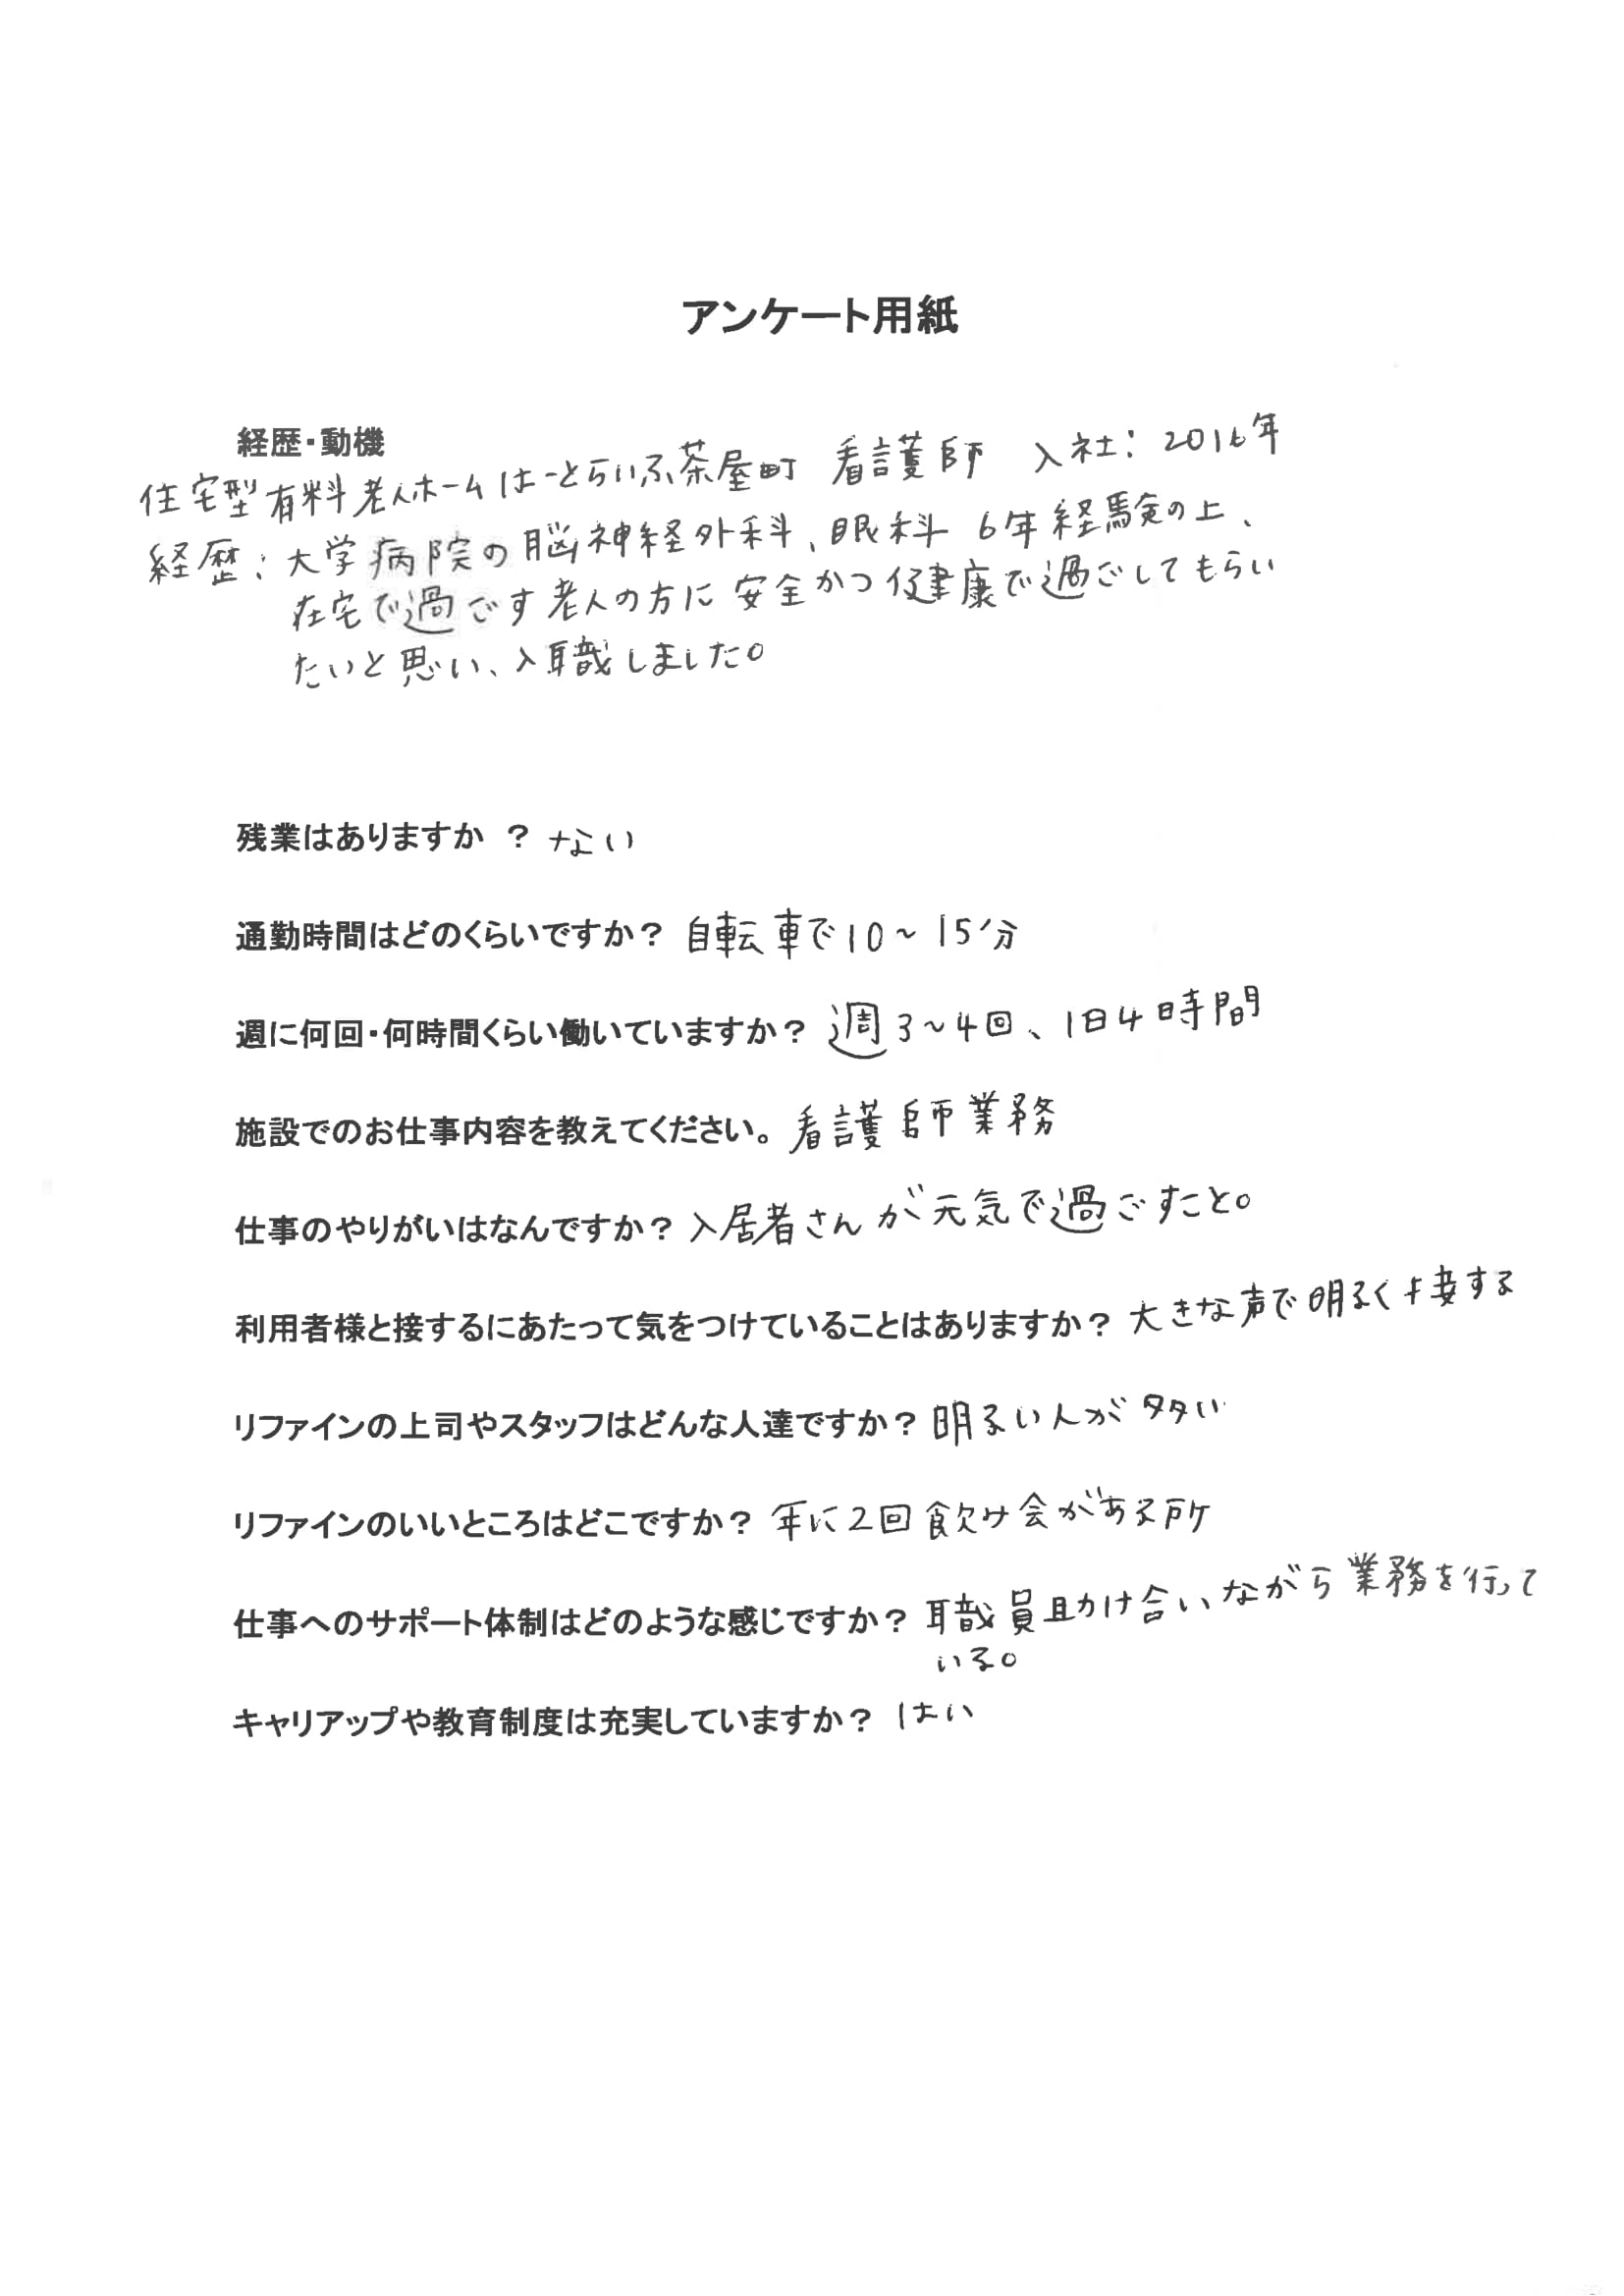 アンケート用紙
経歴・動機
住宅型有料老人ホームはーとらいふ茶屋町 看護師 入社：2016年
経歴：大学病院の脳神経外科、眼科 6年経験の上、
在宅で過ごす老人の方に安全かつ健康で過ごしてもらい
たいと思い、入職しました。
残業はありますか ？ ない
通勤時間はどのくらいですか？ 自転車で10～15分
週に何回・何時間くらい働いていますか？ 週3～4回、1日4時間
施設でのお仕事内容を教えてください。 看護師業務
仕事のやりがいはなんですか？ 入居者さんが元気で過ごすこと。
利用者様と接するにあたって気をつけていることはありますか？ 大きな声で明るく接する
リファインの上司やスタッフはどんな人達ですか？ 明るい人が多い
リファインのいいところはどこですか？ 年に2回飲み会がある所
仕事へのサポート体制はどのような感じですか？ 職員助け合いながら業務を行って
いる。
キャリアップや教育制度は充実していますか？ はい